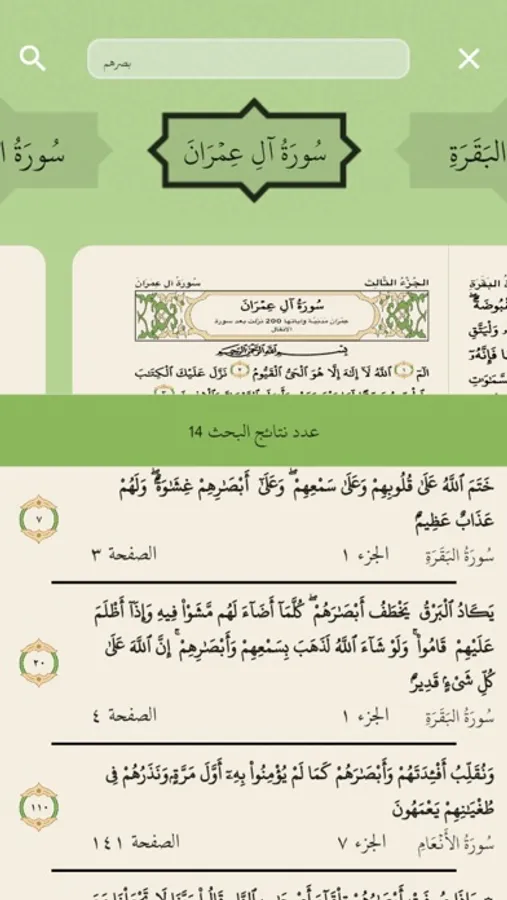 بصرهم
البَقَرَةِ
سُورَةُ آلِ عِمْرَانَ
سُورَةُ ا
الجُزءُ الثَّالث
سُورَة آل عمرَان
سُورَةُ آلِ عِمْرَانَ
بِسْمِ ٱللَّهِ ٱلرَّحْمَٰنِ ٱلرَّحِيمِ
الٓمٓ ١ ٱللَّهُ لَآ إِلَٰهَ إِلَّا هُوَ ٱلْحَىُّ ٱلْقَيُّومُ ٢ نَزَّلَ عَلَيْكَ ٱلْكِتَٰبَ
عدد نتائج البحث 14
خَتَمَ ٱللَّهُ عَلَىٰ قُلُوبِهِمْ وَعَلَىٰ سَمْعِهِمْ ۖ وَعَلَىٰٓ أَبْصَٰرِهِمْ غِشَٰوَةٌ ۖ وَلَهُمْ
عَذَابٌ عَظِيمٌ
٧
سُورَةُ البَقَرَةِ الجزء ١ الصفحة ٣
يَكَادُ ٱلْبَرْقُ يَخْطَفُ أَبْصَٰرَهُمْ ۖ كُلَّمَآ أَضَآءَ لَهُم مَّشَوْا۟ فِيهِ وَإِذَآ أَظْلَمَ
عَلَيْهِمْ قَامُوا۟ ۚ وَلَوْ شَآءَ ٱللَّهُ لَذَهَبَ بِسَمْعِهِمْ وَأَبْصَٰرِهِمْ ۚ إِنَّ ٱللَّهَ عَلَىٰ
كُلِّ شَىْءٍ قَدِيرٌ
٢٠
سُورَةُ البَقَرَةِ الجزء ١ الصفحة ٤
وَنُقَلِّبُ أَفْـِٔدَتَهُمْ وَأَبْصَٰرَهُمْ كَمَا لَمْ يُؤْمِنُوا۟ بِهِۦٓ أَوَّلَ مَرَّةٍ وَنَذَرُهُمْ فِى
طُغْيَٰنِهِمْ يَعْمَهُونَ
١١٠
سُورَةُ الأَنْعَامِ الجزء ٧ الصفحة ١٤١